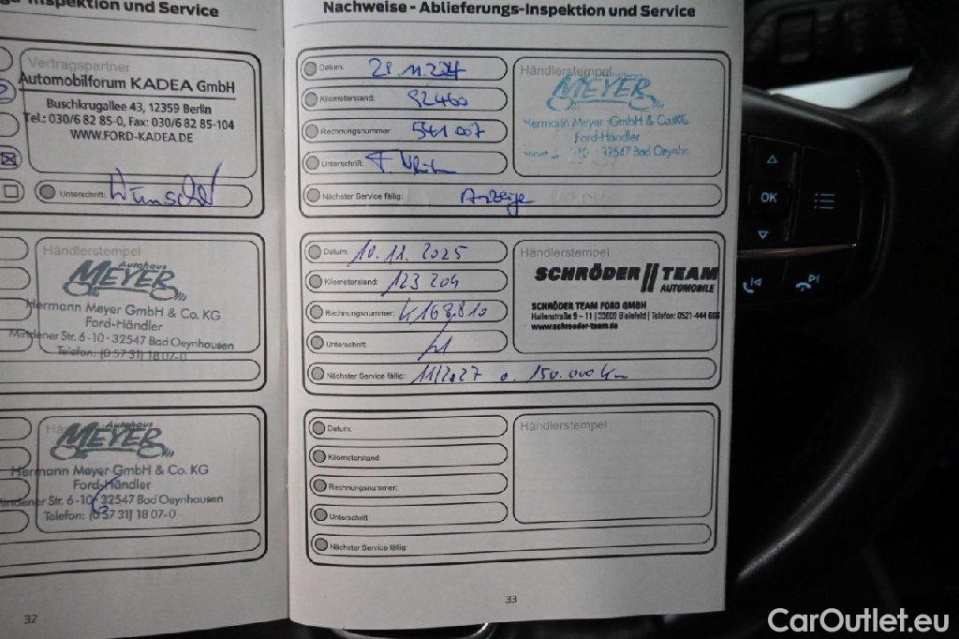 -Inspektion und Service
Vertragspartner
Automobilforum KADEA GmbH
Buschkrugallee 43, 12359 Berlin
Tel.: 030/6 82 85-0, Fax: 030/6 82 85-104
WWW.FORD-KADEA.DE
Unterschrift: Wünsche
Händlerstempel
Autohaus
MEYER
Hermann Meyer GmbH & Co. KG
Ford-Händler
Mindener Str. 6-10 · 32547 Bad Oeynhausen
Telefon: (0 57 31) 18 07-0
Autohaus
MEYER
Hermann Meyer GmbH & Co. KG
Ford-Händler
Mindener Str. 6-10 · 32547 Bad Oeynhausen
Telefon: (0 57 31) 18 07-0
32
Nachweise - Ablieferungs-Inspektion und Service
Datum:
Kilometerstand: 92460
Rechnungsnummer: 541007
Unterschrift:
Nächster Service fällig: Anzeige
Händlerstempel
MEYER
Hermann Meyer GmbH & Co. KG
Ford-Händler
32547 Bad Oeynh
Datum: 10.11.2025
Kilometerstand: 123 204
Rechnungsnummer: 4168810
Unterschrift:
Nächster Service fällig: 11/2027 o. 150.000 km
Händlerstempel
SCHRÖDER TEAM
AUTOMOBILE
SCHRÖDER TEAM FORD GMBH
Hallenstraße 9 – 11 | 33609 Bielefeld | Telefon: 0521-444
www.schroeder-team.de
Datum:
Kilometerstand:
Rechnungsnummer:
Unterschrift:
Nächster Service fällig:
Händlerstempel
33
OK
CarOutlet.eu